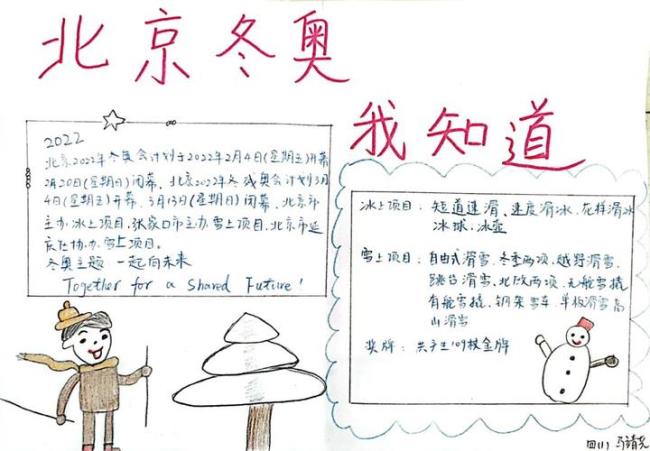 北京冬奥
我知道
2022
北京2022年冬奥会计划于2022年2月4日(星期五)开幕
2月20日(星期日)闭幕，北京2022年冬残奥会计划3月
4日(星期五)开幕，3月13日(星期日)闭幕，北京市
主办冰上项目，张家口市主办雪上项目，北京市延
庆协办雪上项目。
冬奥主题 一起向未来
Together for a Shared Future!
冰上项目：短道速滑、速度滑冰、花样滑冰
冰球、冰壶
雪上项目：自由式滑雪、冬季两项、越野滑雪、
跳台滑雪、北欧两项、无舵雪橇
有舵雪橇、钢架雪车、单板滑雪高
山滑雪
奖牌：共产生109枚金牌
四(1)